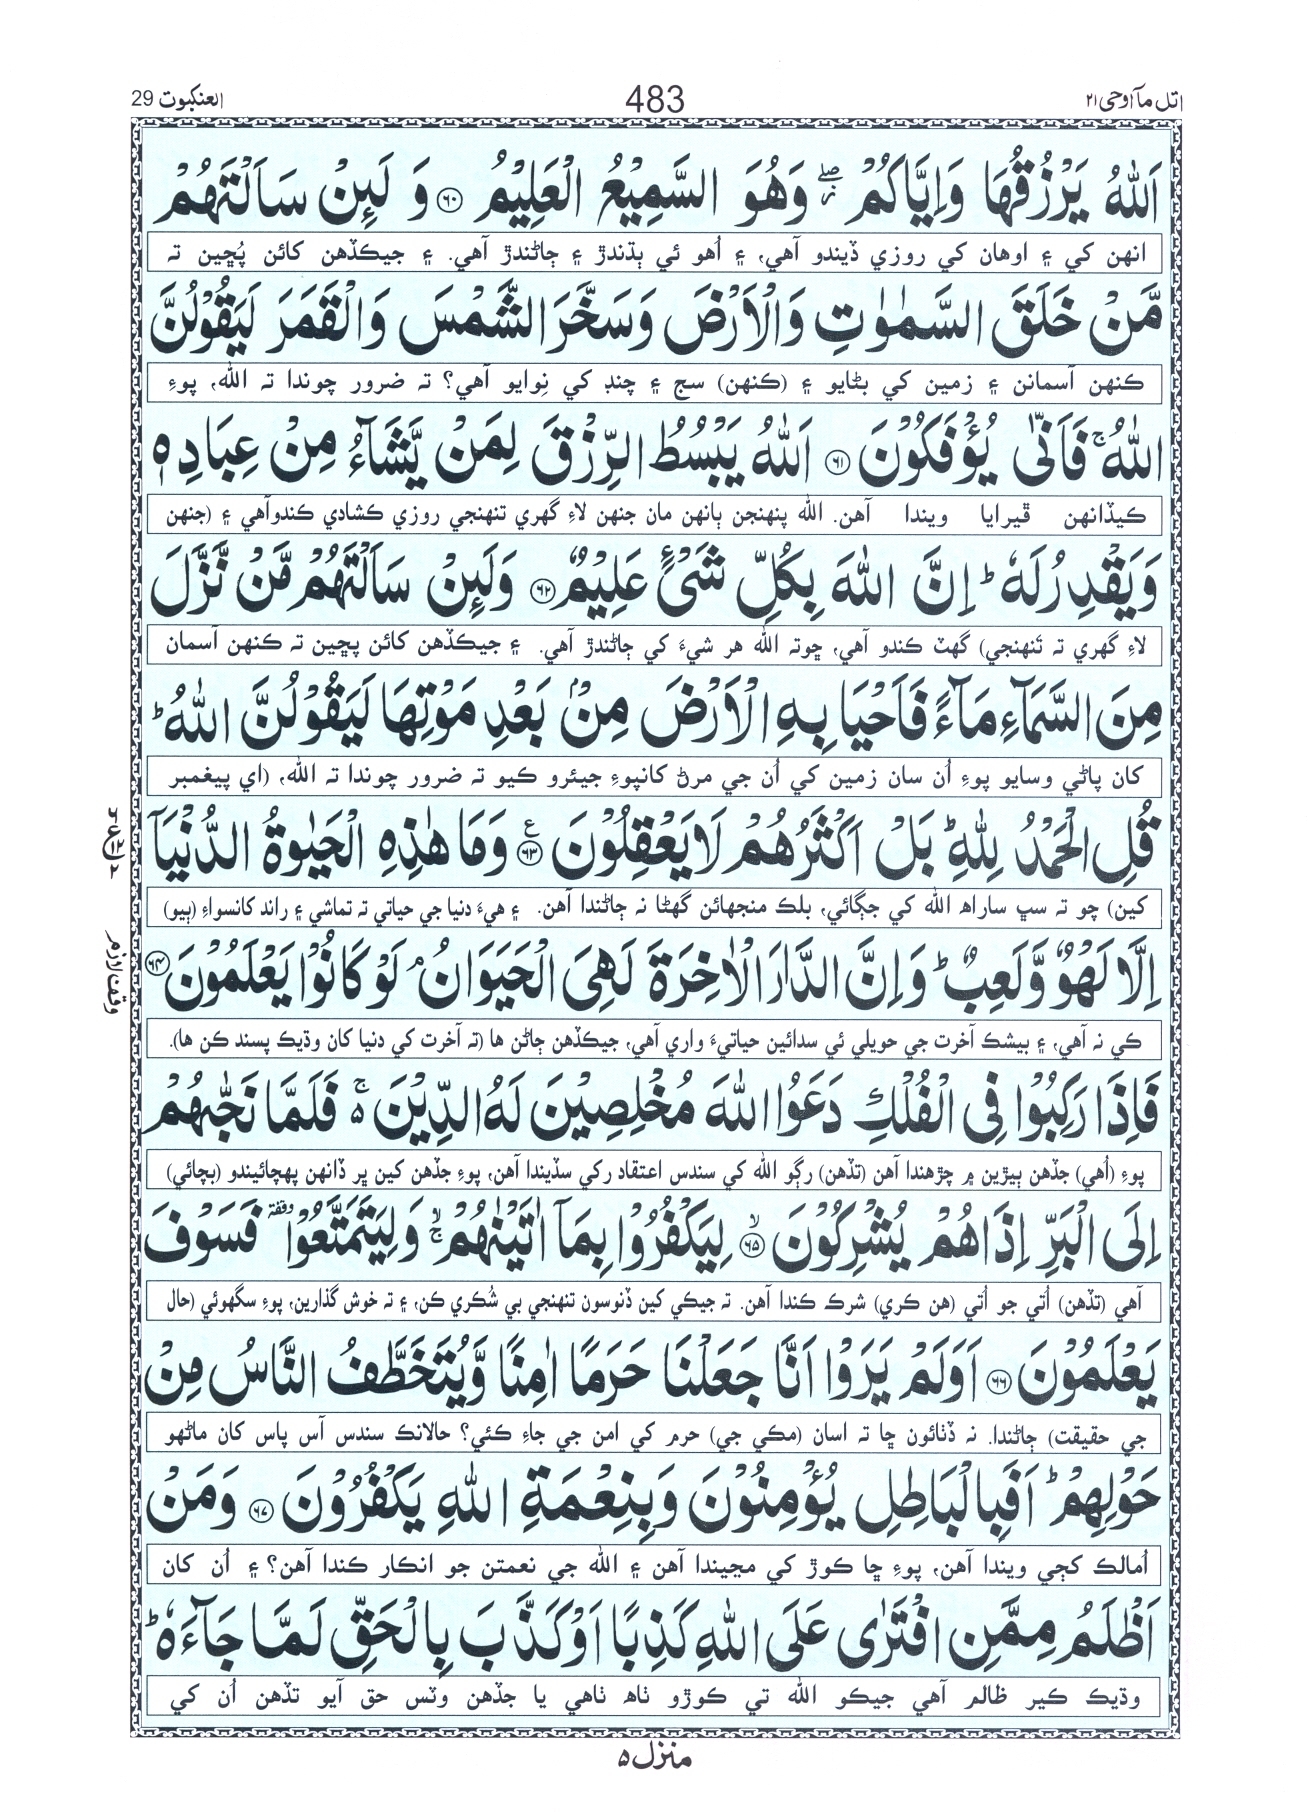 اتل مآ اوحی ۲۱
483
العنکبوت 29
اَللّٰهُ يَرْزُقُهَا وَاِيَّاكُمْ ۖؗ وَهُوَ السَّمِيْعُ الْعَلِيْمُ ﴿۶۰﴾ وَ لَىِٕنْ سَاَلْتَهُمْ
انهن کي ۽ اوهان کي روزي ڏيندو آهي، ۽ اُهو ئي ٻڌندڙ ۽ ڄاڻندڙ آهي. ۽ جيڪڏهن کائن پُڇين تہ
مَّنْ خَلَقَ السَّمٰوٰتِ وَالْاَرْضَ وَسَخَّرَ الشَّمْسَ وَالْقَمَرَ لَيَقُوْلُنَّ
ڪنهن آسمانن ۽ زمين کي بڻايو ۽ (ڪنهن) سج ۽ چنڊ کي نِوايو آهي؟ تہ ضرور چوندا تہ الله، پوءِ
اللّٰهُ ۚ فَاَنّٰى يُؤْفَكُوْنَ ﴿۶۱﴾ اَللّٰهُ يَبْسُطُ الرِّزْقَ لِمَنْ يَّشَآءُ مِنْ عِبَادِهٖ
ڪيڏانهن ڦيرايا ويندا آهن. الله پنهنجن ٻانهن مان جنهن لاءِ گهري تنهنجي روزي ڪشادي ڪندوآهي ۽ (جنهن
وَيَقْدِرُ لَهٗ ؕ اِنَّ اللّٰهَ بِكُلِّ شَىْءٍ عَلِيْمٌ ﴿۶۲﴾ وَلَىِٕنْ سَاَلْتَهُمْ مَّنْ نَّزَّلَ
لاءِ گهري تہ تَنهنجي) گهٽ ڪندو آهي، ڇوتہ الله هر شيءَ کي ڄاڻندڙ آهي. ۽ جيڪڏهن کائن پڇين تہ ڪنهن آسمان
مِنَ السَّمَآءِ مَآءً فَاَحْيَا بِهِ الْاَرْضَ مِنْۢ بَعْدِ مَوْتِهَا لَيَقُوْلُنَّ اللّٰهُ ؕ
کان پاڻي وسايو پوءِ اُن سان زمين کي اُن جي مرڻ کانپوءِ جيئرو ڪيو تہ ضرور چوندا تہ الله، (اي پيغمبر
قُلِ الْحَمْدُ لِلّٰهِ ؕ بَلْ اَكْثَرُهُمْ لَا يَعْقِلُوْنَ ﴿۶۳﴾ ع وَمَا هٰذِهِ الْحَيٰوةُ الدُّنْيَاۤ
کين) چو تہ سڀ ساراھ الله کي جڳائي، بلڪ منجهائن گهڻا نہ ڄاڻندا آهن. ۽ هيءَ دنيا جي حياتي تہ تماشي ۽ راند کانسواءِ (ٻيو)
اِلَّا لَهْوٌ وَّلَعِبٌ ؕ وَاِنَّ الدَّارَ الْاٰخِرَةَ لَهِىَ الْحَيَوَانُ ۘ لَوْ كَانُوْا يَعْلَمُوْنَ ﴿۶۴﴾
وقف لازم
کي نہ آهي، ۽ بيشڪ آخرت جي حويلي ئي سدائين حياتيءَ واري آهي، جيڪڏهن ڄاڻن ها (تہ آخرت کي دنيا کان وڌيڪ پسند ڪن ها).
فَاِذَا رَكِبُوْا فِى الْفُلْكِ دَعَوُا اللّٰهَ مُخْلِصِيْنَ لَهُ الدِّيْنَ ۚ۬ فَلَمَّا نَجّٰىهُمْ
پوءِ (اُهي) جڏهن ٻيڙين ۾ چڙهندا آهن (تڏهن) رڳو الله کي سندس اعتقاد رکي سڏيندا آهن، پوءِ جڏهن کين ٻر ڏانهن پهچائيندو (بچائي)
اِلَى الْبَرِّ اِذَا هُمْ يُشْرِكُوْنَ ۙ﴿۶۵﴾ لِيَكْفُرُوْا بِمَاۤ اٰتَيْنٰهُمْ ۙۚ وَلِيَتَمَتَّعُوْا وقفة فَسَوْفَ
آهي (تڏهن) اُتي جو اُتي (هن ڪري) شرڪ ڪندا آهن. تہ جيڪي کين ڏنوسون تنهنجي بي شُڪري ڪن، ۽ تہ خوش گذارين، پوءِ سگهوئي (حال
يَعْلَمُوْنَ ﴿۶۶﴾ اَوَلَمْ يَرَوْا اَنَّا جَعَلْنَا حَرَمًا اٰمِنًا وَّيُتَخَطَّفُ النَّاسُ مِنْ
جي حقيقت) ڄاڻندا. نہ ڏٺائون ڇا تہ اسان (مڪي جي) حرم کي امن جي جاءِ ڪئي؟ حالانڪ سندس آس پاس کان ماڻهو
حَوْلِهِمْ ؕ اَفَبِالْبَاطِلِ يُؤْمِنُوْنَ وَبِنِعْمَةِ اللّٰهِ يَكْفُرُوْنَ ﴿۶۷﴾ وَمَنْ
اُمالڪ کڄي ويندا آهن، پوءِ ڇا ڪوڙ کي مڃيندا آهن ۽ الله جي نعمتن جو انڪار ڪندا آهن؟ ۽ اُن کان
اَظْلَمُ مِمَّنِ افْتَرٰى عَلَى اللّٰهِ كَذِبًا اَوْ كَذَّبَ بِالْحَقِّ لَمَّا جَآءَهٗ ؕ
وڌيڪ ڪير ظالم آهي جيڪو الله تي ڪوڙو ٺاھ ٺاهي يا جڏهن وٽس حق آيو تڏهن اُن کي
منزل ۵